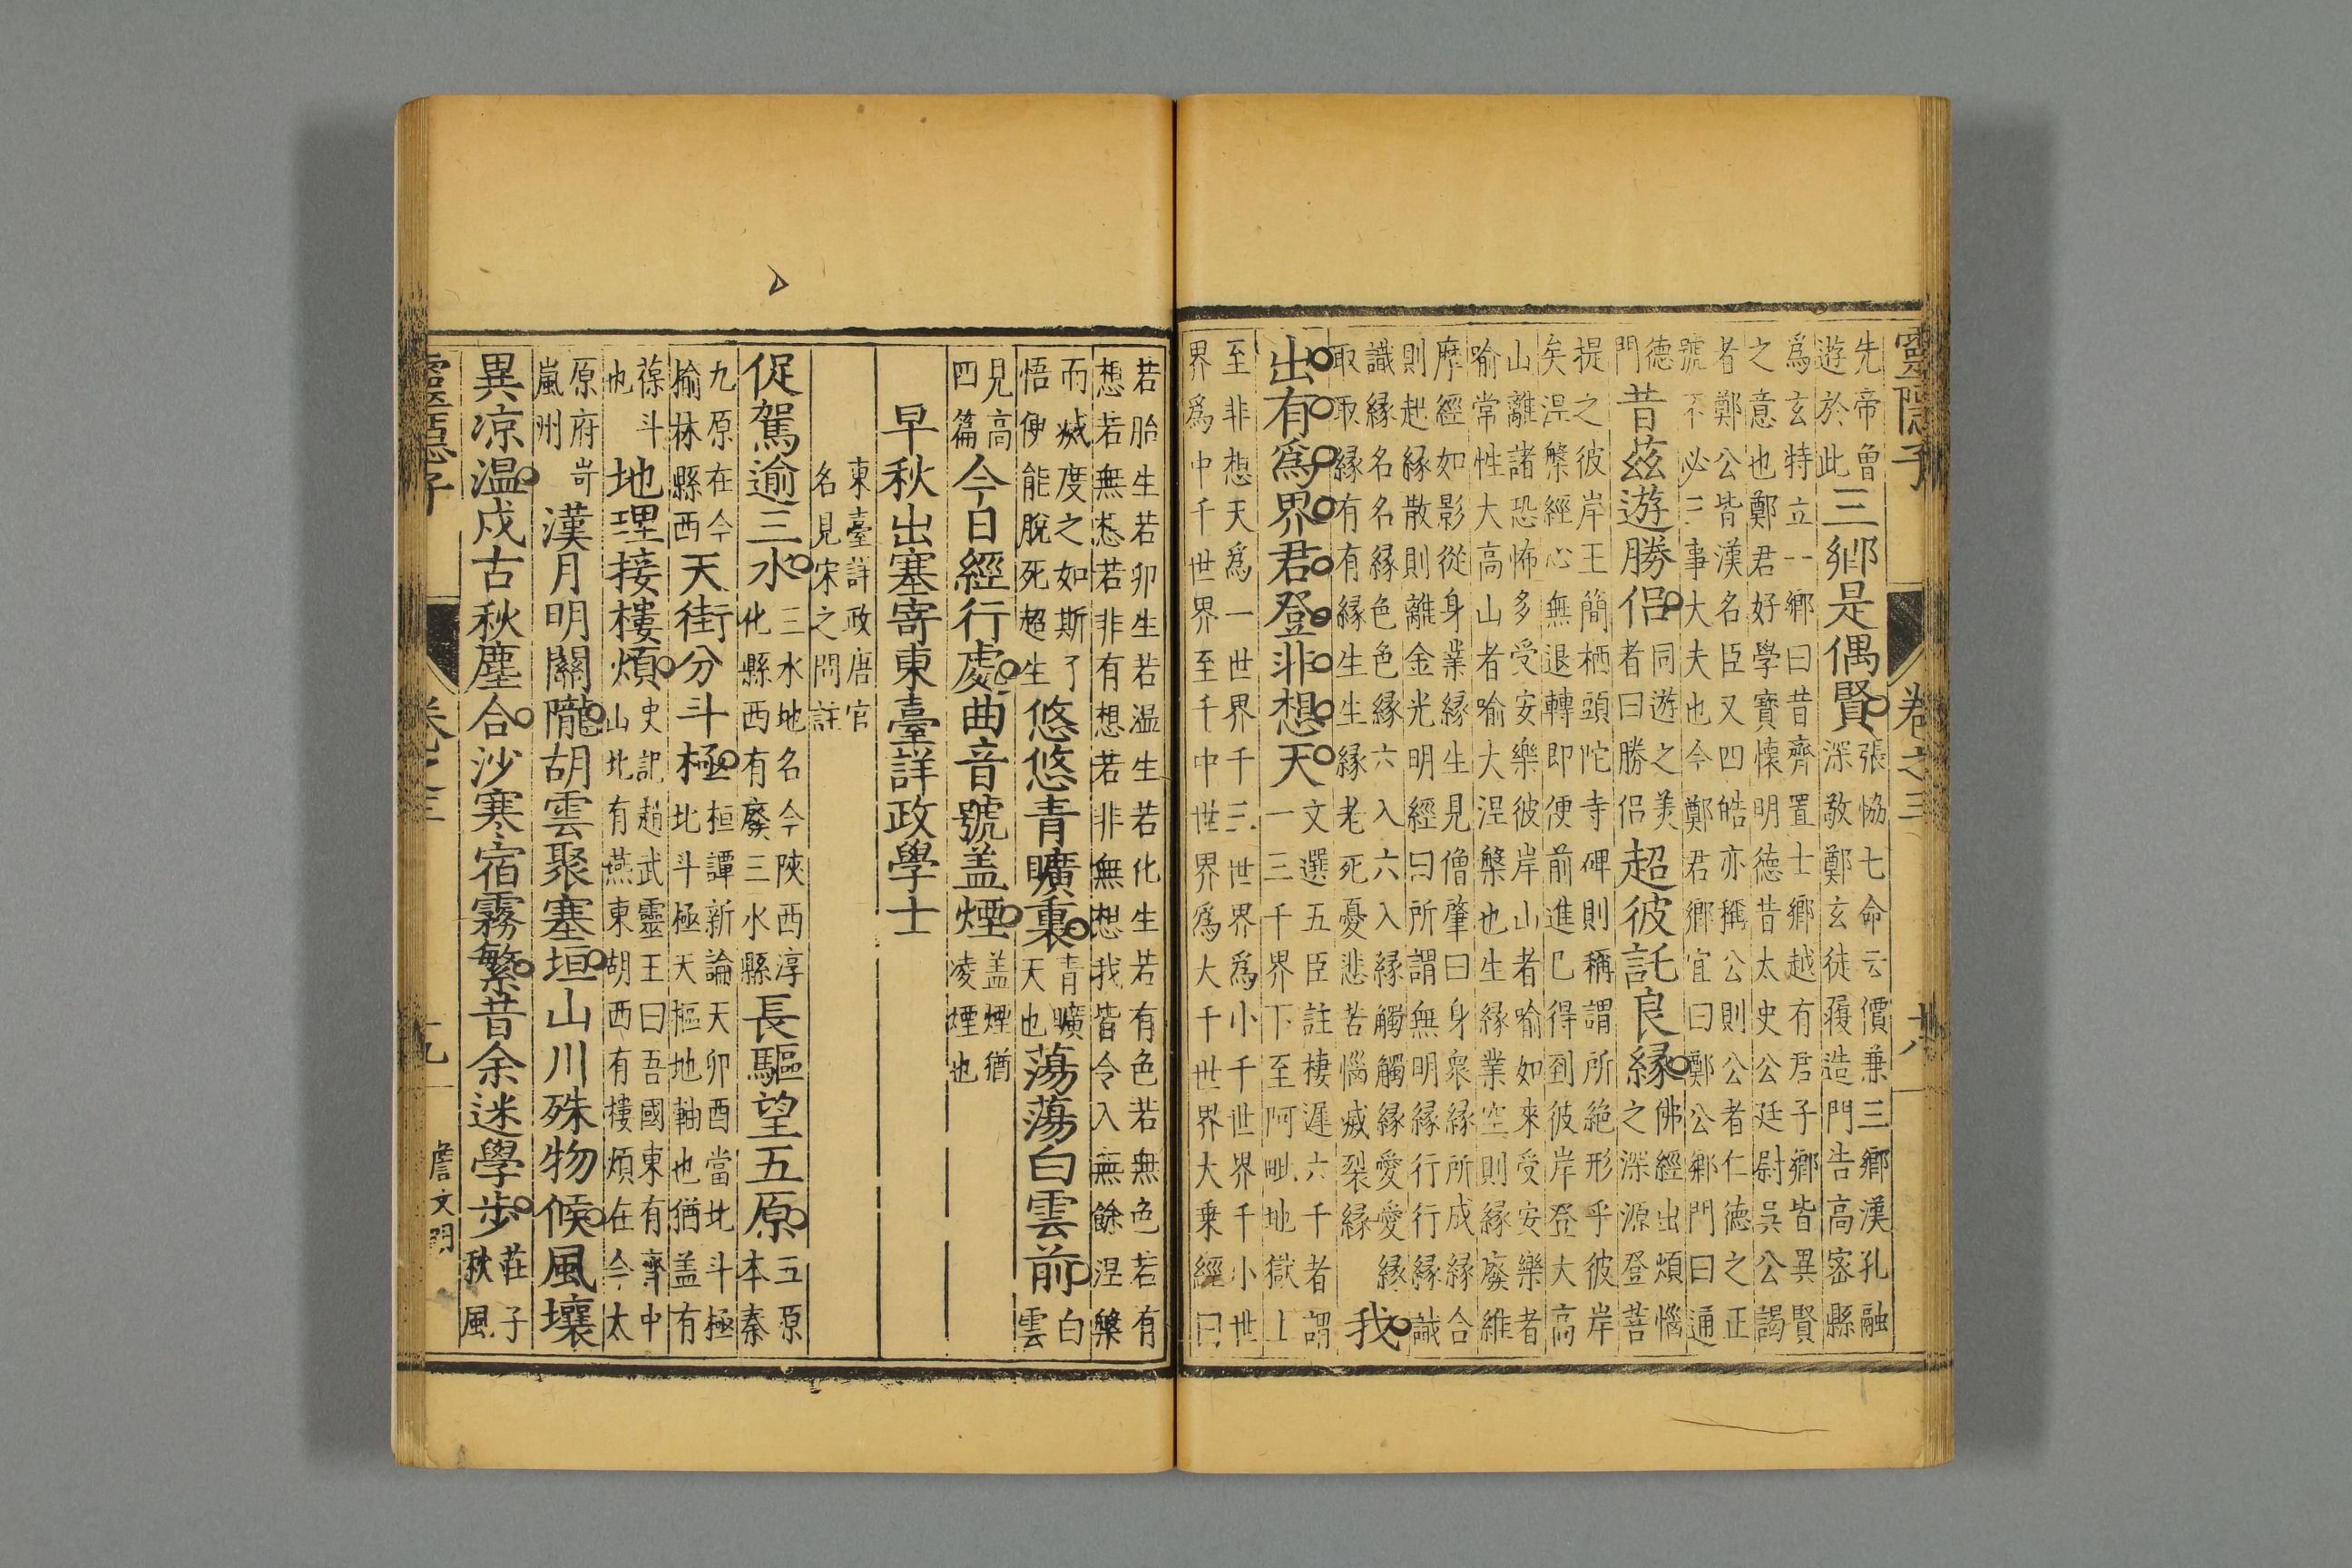 靈隱子 卷之三 十八
先帝曾遊於此三鄉是偶賢張協七命云價兼三鄉漢孔融深敬鄭玄徒履造門告高密縣
為玄特立一鄉曰昔齊置士鄉越有君子鄉皆異賢之意也鄭君好學實懷明德昔太史公廷尉吳公謁
者鄭公皆漢名臣又四皓亦稱公則公者仁德之正號不必三事大夫也今鄭君鄉宜曰鄭公鄉門曰通
德門昔茲遊勝侶同遊之美者曰勝侶超彼託良緣佛經出煩惱之深源登菩
提之彼岸王簡栖頭陀寺碑則稱謂所絶形乎彼岸矣涅槃經心無退轉即便前進已得到彼岸登大高
山離諸恐怖多受安樂彼岸山者喻如來受安樂者喻常性大高山者喻大涅槃也生緣業空則緣廢維
摩經如影從身業緣生見僧肇曰身衆緣所成緣合則起緣散則離金光明經曰所謂無明緣行行緣識
識緣名名緣色色緣六入六入緣觸觸緣愛愛緣取取緣有有緣生生緣老死憂悲苦惱滅裂緣我
出有爲界君登非想天文選五臣註棲遲六千者謂一三千界下至阿毗地獄上
至非想天爲一世界千三世界爲小千世界千小世界爲中千世界至千中世界爲大千世界大乗經曰
若胎生若卵生若温生若化生若有色若無色若有想若無想若非有想若非無想我皆令入無餘涅槃
而滅度之如斯了悟俾能脫死超生悠悠青曠裏青曠天也蕩蕩白雲前白雲
見高四篇今日經行處曲音號盖煙盖煙猶凌煙也
早秋出塞寄東臺詳政學士
東臺詳政唐官名見宋之問註
促駕逾三水三水地名今陝西淳化縣西有廢三水縣長驅望五原五原本秦
九原在今榆林縣西天街分斗極桓譚新論天卯酉當北斗極北斗極天樞地軸也猶盖有
葆斗也地理接樓煩史記趙武靈王曰吾國東有齊中山北有燕東胡西有樓煩在今太
原府岢嵐州漢月明關隴胡雲聚塞垣山川殊物候風壤
異凉温戍古秋塵合沙寒宿霧繁昔余迷學步莊子秋風
靈隱子 卷之三 十九 詹文明